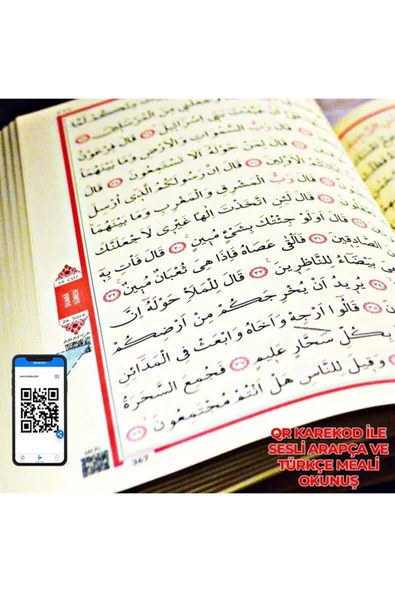 مِنْكُمْ لَمَّا
وَجَعَلَنِي مِنَ الْمُرْسَلِينَ
بَنِي اِسْرَائِيلَ قَالَ فِرْعَوْنُ
قَالَ رَبُّ السَّمٰوَاتِ وَالْاَرْضِ وَمَا بَيْنَهُمَا
قَالَ لِمَنْ حَوْلَهُ اَلَا تَسْتَمِعُونَ
الْاَوَّلِينَ قَالَ اِنَّ رَسُولَكُمُ الَّذِي اُرْسِلَ
قَالَ رَبُّ الْمَشْرِقِ وَالْمَغْرِبِ وَمَا بَيْنَهُمَا
قَالَ لَئِنِ اتَّخَذْتَ اِلٰهًا غَيْرِي لَاَجْعَلَنَّكَ
قَالَ اَوَلَوْ جِئْتُكَ بِشَيْءٍ مُبِينٍ قَالَ فَأْتِ بِهِ
الصَّادِقِينَ فَاَلْقٰى عَصَاهُ فَاِذَا هِيَ ثُعْبَانٌ مُبِينٌ
هِيَ بَيْضَاءُ لِلنَّاظِرِينَ قَالَ لِلْمَلَاِ حَوْلَهُ اِنَّ
يُرِيدُ اَنْ يُخْرِجَكُمْ مِنْ اَرْضِكُمْ
قَالُوا اَرْجِهْ وَاَخَاهُ وَابْعَثْ فِي الْمَدَائِنِ
بِكُلِّ سَحَّارٍ عَلِيمٍ فَجُمِعَ السَّحَرَةُ
وَقِيلَ لِلنَّاسِ هَلْ اَنْتُمْ مُجْتَمِعُونَ
367
ARAPÇA
QR KAREKOD İLE
SESLİ ARAPÇA VE
TÜRKÇE MEALİ
OKUNUŞ